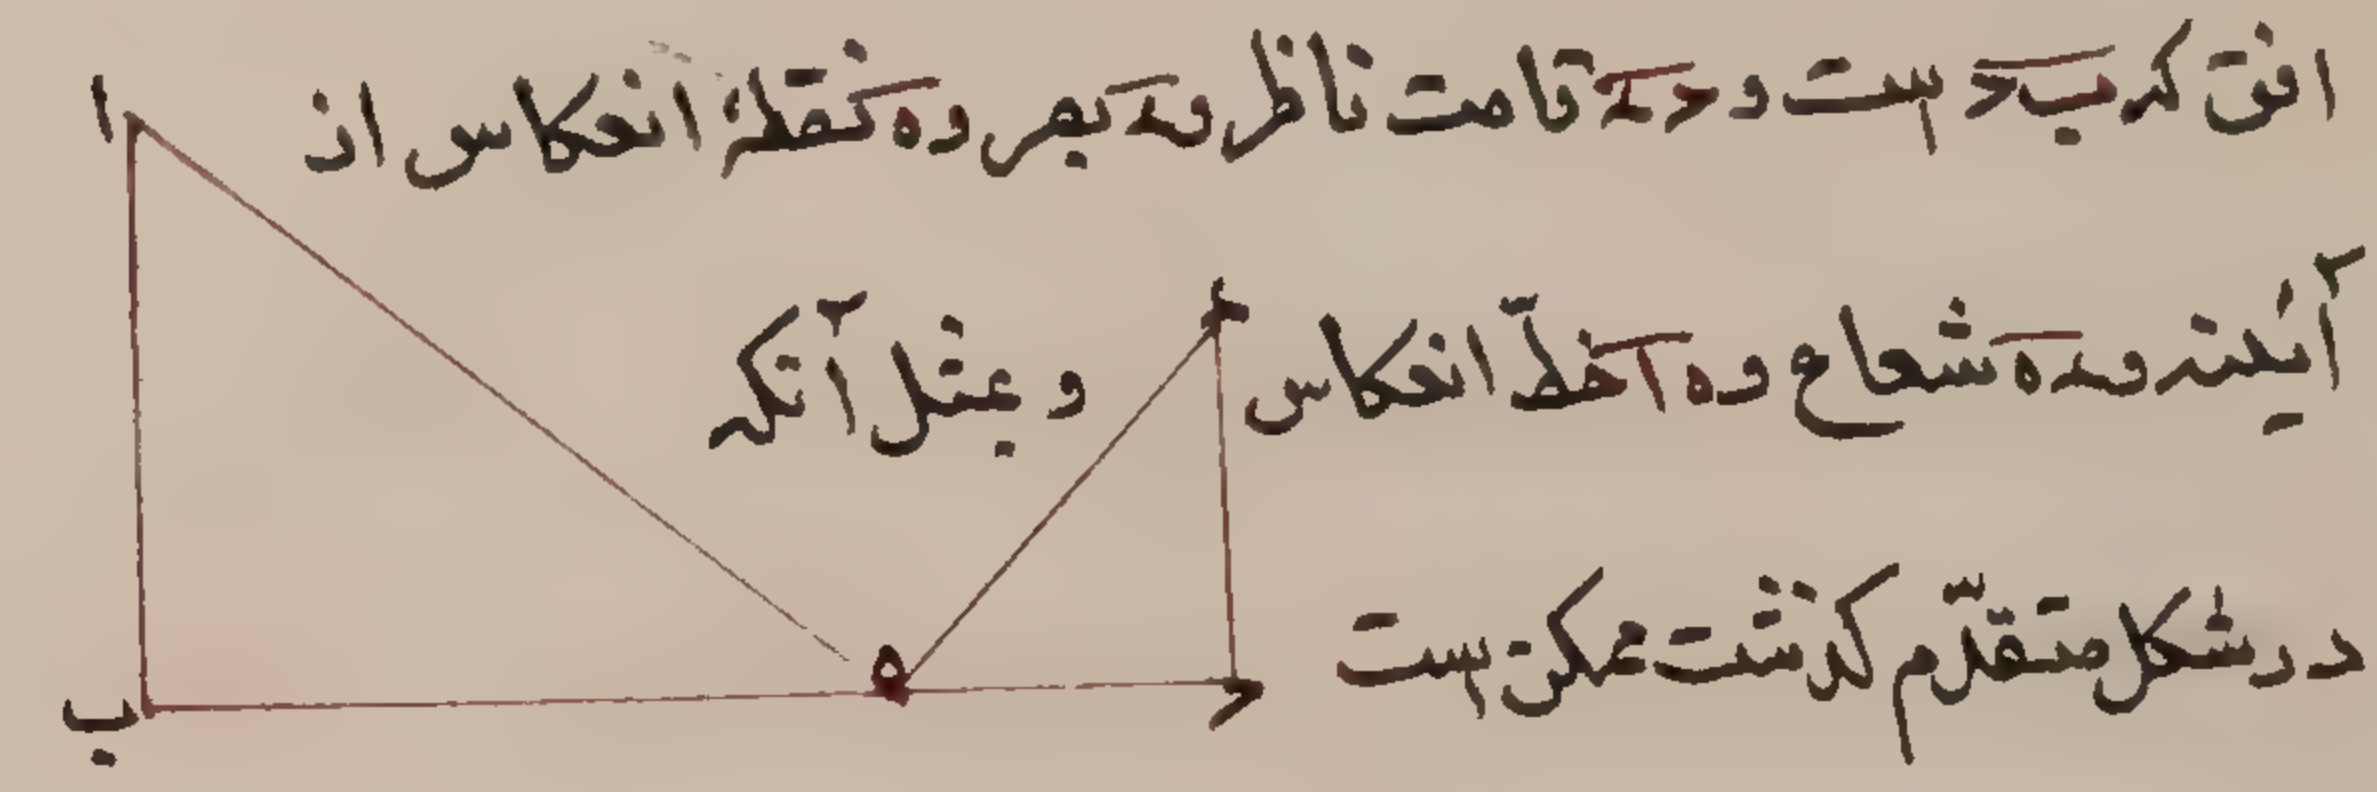 افق که ب‌د است و د‌ح قامت ناظر و ح بصر و ه نقطهٔ انعکاس از
آئینه و ح‌ه شعاع و ه‌ا خطّ انعکاس و بمثل آنکه
در شکل متقدّم گذشت ممکن است
ا
ه
د
ب